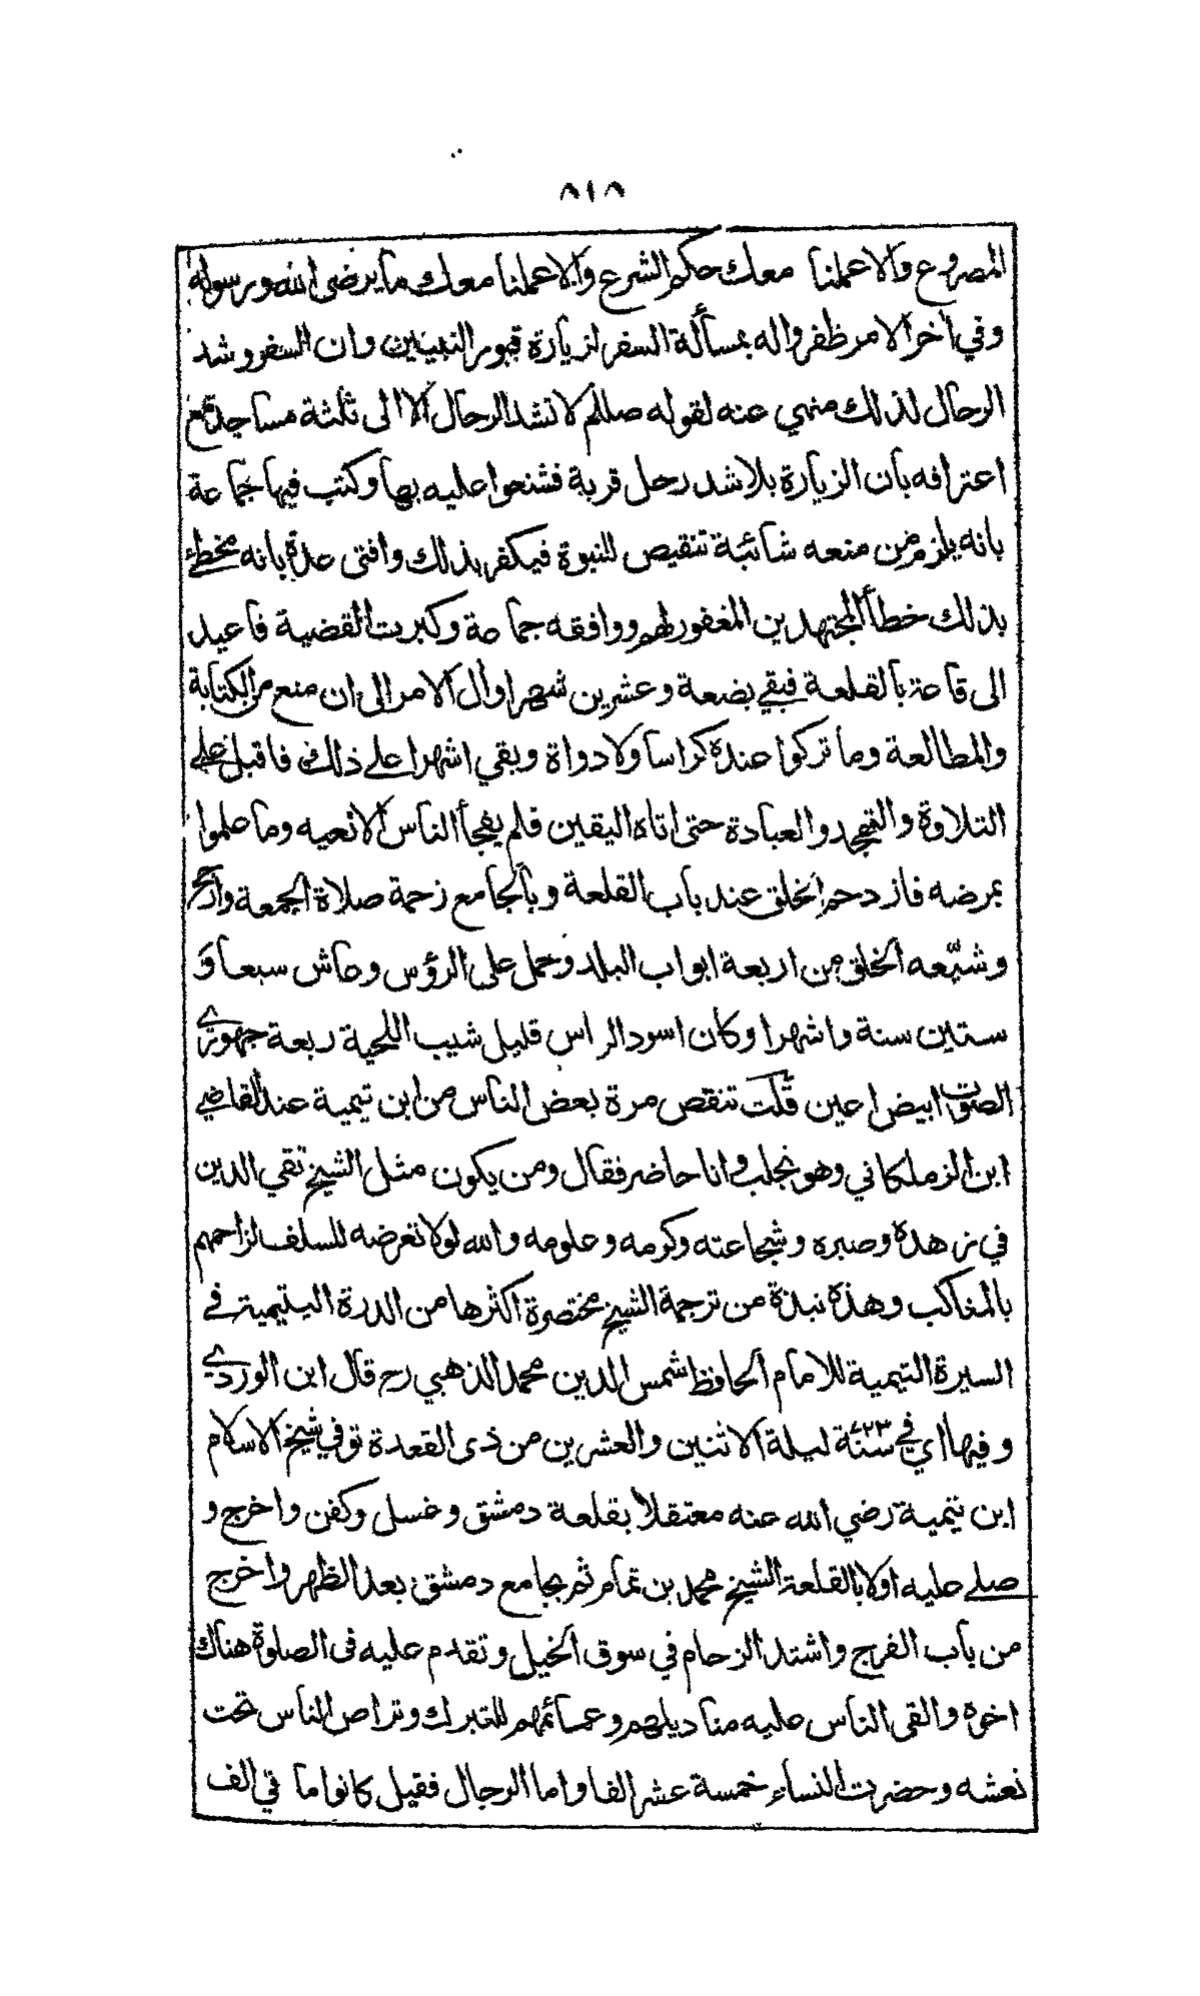 ٨١٨
المصروع والا عملنا معك حكم الشرع والا عملنا معك ما يرضى الله ورسوله
وفي آخر الامر ظفروا له بمسألة السفر لزيارة قبور النبيين وان السفر وشد
الرحال لذلك منهي عنه لقوله صلعم لا تشد الرحال الا الى ثلثة مساجد مع
اعترافه بان الزيارة بلا شد رحل قربة فشنعوا عليه بها وكتب فيها جماعة
بانه يلزم من منعه شائبة تنقيص للنبوة فيكفر بذلك وافتى عدة بانه مخطئ
بذلك خطأ المجتهدين المغفور لهم ووافقه جماعة وكبرت القضية فاعيد
الى قاعة بالقلعة فبقي بضعة وعشرين شهرا وآل الامر الى ان منع من الكتابة
والمطالعة وما تركوا عنده كراسا ولا دواة وبقي اشهرا على ذلك فاقبل على
التلاوة والتهجد والعبادة حتى اتاه اليقين فلم يفجأ الناس الا نعيه وما علموا
بمرضه فازدحم الخلق عند باب القلعة وبالجامع زحمة صلاة الجمعة وارجح
وشيّعه الخلق من اربعة ابواب البلد وحمل على الرؤس وعاش سبعا و
ستين سنة واشهرا وكان اسود الراس قليل شيب اللحية ربعة جهوري
الصوت ابيض اعين قلت تنقص مرة بعض الناس من ابن تيمية عند القاضي
ابن الزملكاني وهو بحلب وانا حاضر فقال ومن يكون مثل الشيخ تقي الدين
في زهده وصبره وشجاعته وكرمه وعلومه والله لولا تعرضه للسلف لزاحمهم
بالمناكب وهذه نبذة من ترجمة الشيخ مختصرة اكثرها من الدرة اليتيمية في
السيرة التيمية للامام الحافظ شمس الدين محمد الذهبي رح قال ابن الوردي
وفيها اي في سنة ٧٢٣ ليلة الاثنين والعشرين من ذى القعدة توفي شيخ الاسلام
ابن تيمية رضي الله عنه معتقلا بقلعة دمشق وغسل وكفن واخرج و
صلى عليه اولا بالقلعة الشيخ محمد بن تمام ثم بجامع دمشق بعد الظهر واخرج
من باب الفرج واشتد الزحام في سوق الخيل وتقدم عليه في الصلوة هناك
اخوه والقى الناس عليه مناديلهم وعمائمهم للتبرك وتراص الناس تحت
نعشه وحضرت النساء خمسة عشر الفا واما الرجال فقيل كانوا ما ئي الف